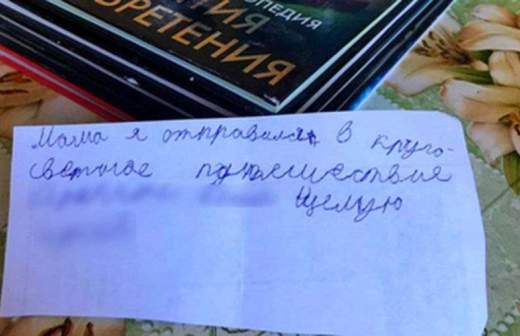 ОПЕДИЯ
ИЯ
БРЕТЕНИЯ
Мама я отправился в круго-
светное путешествие
Целую